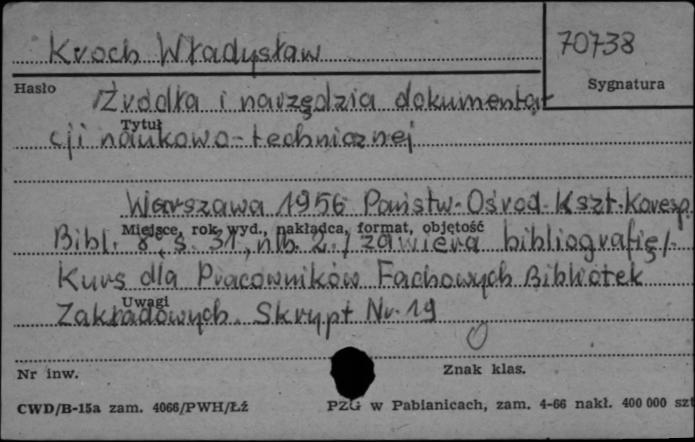 Kroch Władysław
70738
Hasło
Sygnatura
Źródła i narzędzia dokumenta-
Tytuł
cji naukowo-technicznej
Warszawa 1956 Państw. Ośrod. Kszt. Koresp.
Miejsce, rok, wyd., nakładca, format, objętość
Bibl. 8°, s. 31, nlb. 2. /zawiera bibliografię/.
Kurs dla Pracowników Fachowych Bibliotek
Uwagi
Zakładowych. Skrypt Nr. 19
Nr inw.
Znak klas.
CWD/B-15a zam. 4066/PWH/Łź
PZG w Pabianicach, zam. 4-66 nakł. 400 000 szt